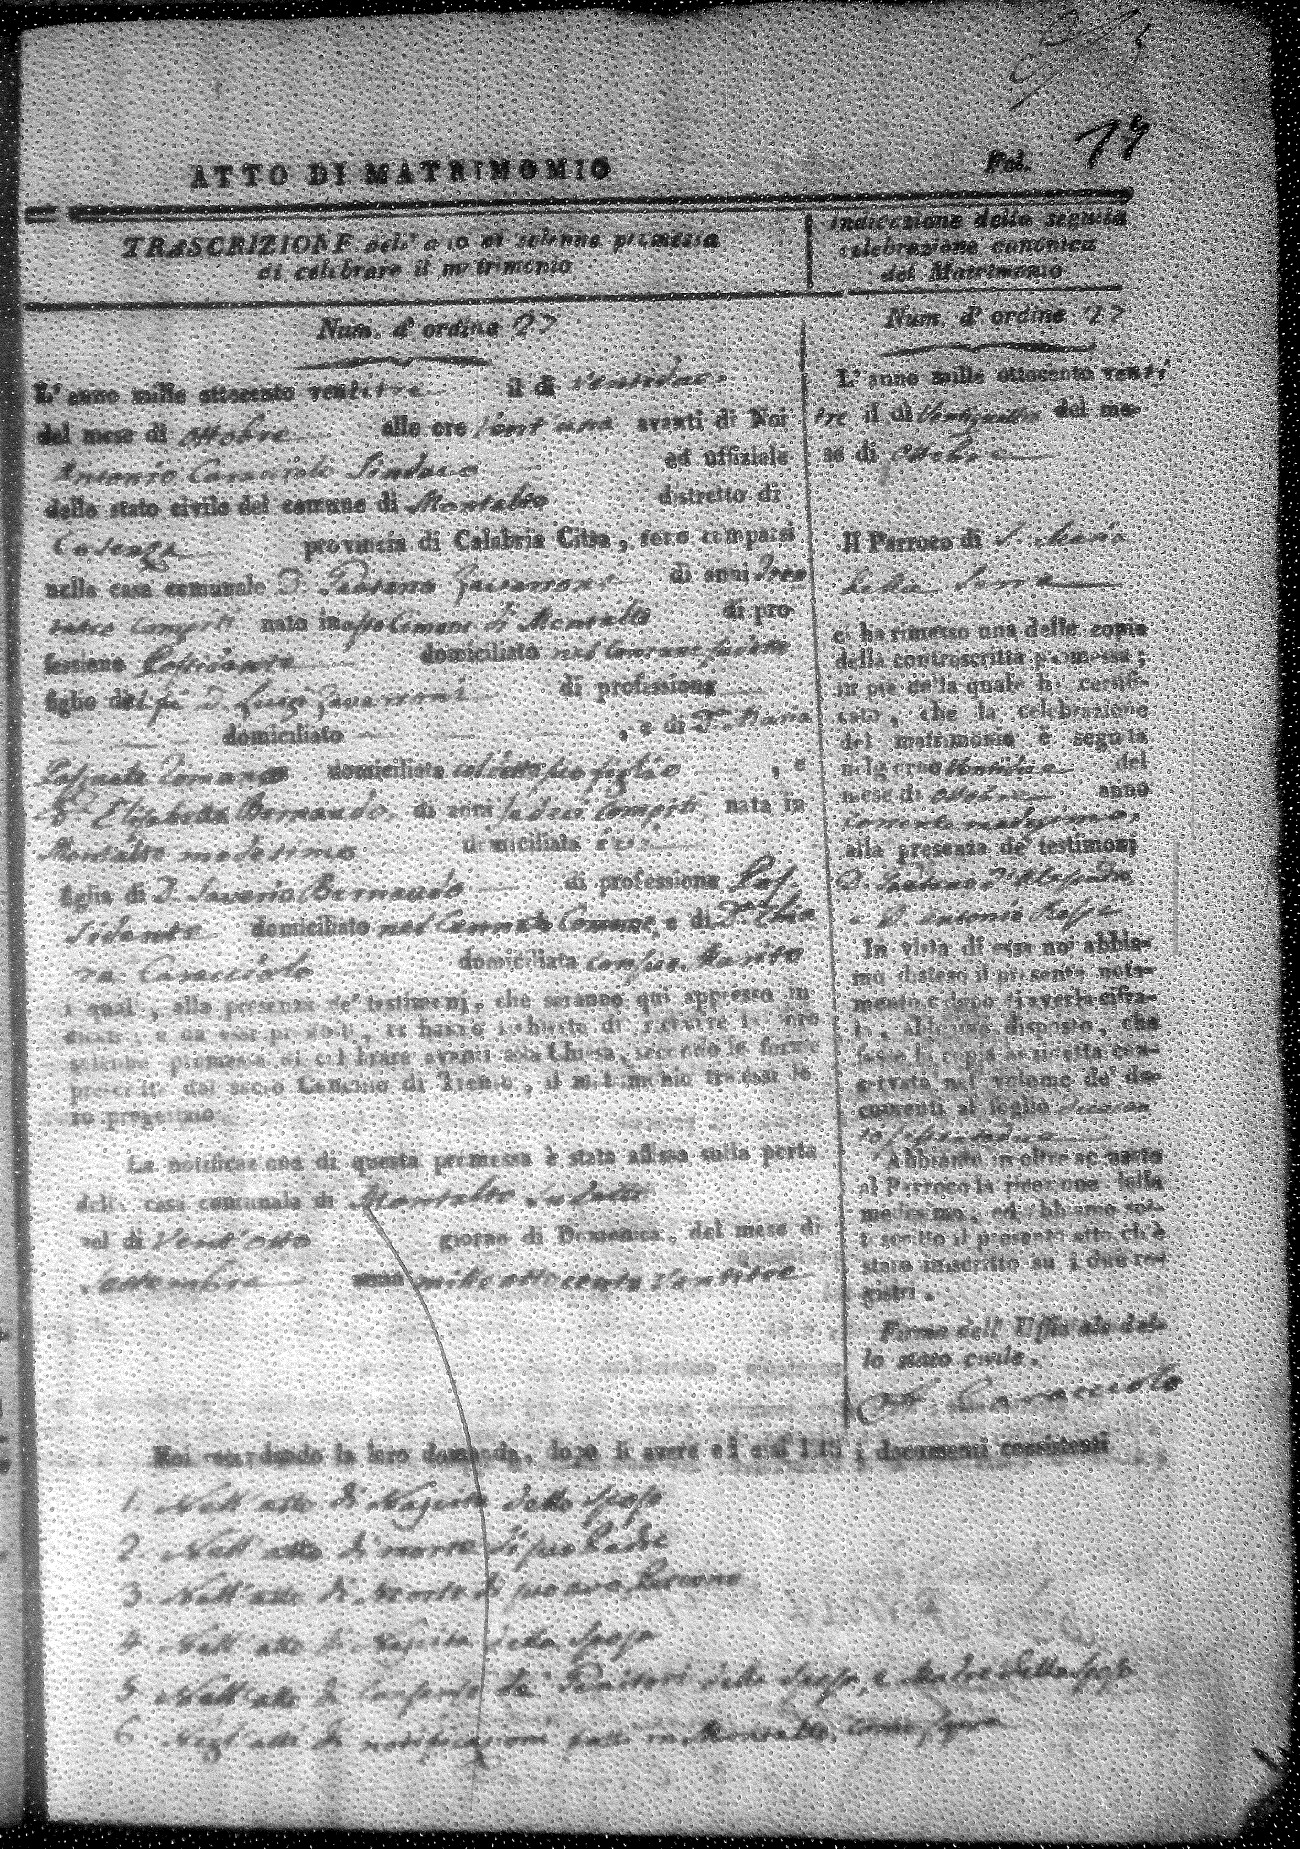 Fol. 19
ATTO DI MATRIMOMIO
TRASCRIZIONE dell' atto di solenne promessa
di celebrare il matrimonio
Num. d' ordine 27
L' anno mille ottocento ventitre il dì
del mese di Ottobre alle ore vent' una avanti di Noi
Antonio Caracciolo Sindaco ed uffiziale
dello stato civile del comune di Montalto distretto di
Cosenza provincia di Calabria Citra, sono comparsi
nella casa comunale D. di anni
compiti nato in Comune di Montalto di pro-
fessione Possidente domiciliato nel Comune
figlio del fù D. Luigi di professione
domiciliato , e di Dª Maria
domiciliata col detto suo figlio , e
Dª Elisabetta Bernaudo di anni sedeci compiti nata in
Montalto medesimo domiciliata
figlia di D. Saverio Bernaudo di professione Pos-
sidente domiciliato nel Comune, e di Dª
Caracciolo domiciliata Marito
i quali, alla presenza de' testimonj, che saranno qui appresso in-
dicati, e da essi prodotti, ci hanno richiesto di ricevere la loro
solenne promessa di celebrare avanti alla Chiesa, secondo le forme
prescritte dal sacro Concilio di Trento, il matrimonio tra essi lo-
ro progettato
La notificazione di questa promessa è stata affissa sulla porta
della casa comunale di Montalto
nel dì Vent'otto giorno di Domenica, del mese di
Settembre anno mille ottocento ventitre
Indicazione della seguita
celebrazione canonica
del Matrimonio
Num. d' ordine 27
L' anno mille ottocento venti
tre il dì del me-
se di Ottobre
Il Parroco di S. Maria
della Serra
ci ha rimesso una delle copie
della controscritta promessa;
in piè della quale ha certifi-
cato, che la celebrazione
del matrimonio è seguita
nel giorno del
mese di Ottobre anno
corrente medesimo,
alla presenza de' testimonj
D. Gaetano D'Alessandro
e D. Antonio
In vista di essa noi abbia-
mo disteso il presente nota-
mento, e dopo di averla cifra-
ta, abbiamo disposto, che
fosse la copia anzidetta con-
servata nel volume de' do-
cumenti al foglio
Abbiamo inoltre accusato
al Parroco la ricezione della
medesima, ed abbiamo sot-
toscritto il presente atto ch'è
stato inscritto su i due re-
gistri.
Firma dell' Uffiziale del-
lo stato civile.
A. Caracciolo
Noi secondando la loro domanda, dopo di avere ad esse letti i documenti consistenti
1. Nell' atto di Nascita dello sposo
2. Nell' atto di morte di suo Padre
3. Nell' atto di morte di suo avo Paterno
4. Nell' atto di Nascita della sposa
5. Nell' atto di Consenso de' Genitori della sposa, e Madre dello sposo
6. Negl' atti di notificazioni fatti in Montalto,